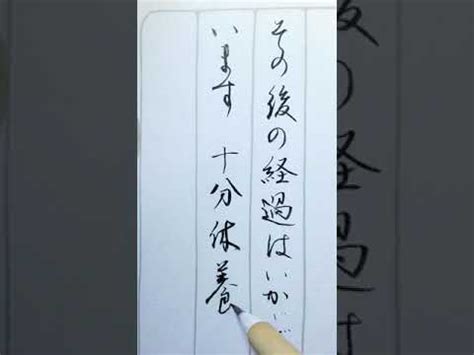 その後の経過はいか
います 十分休養